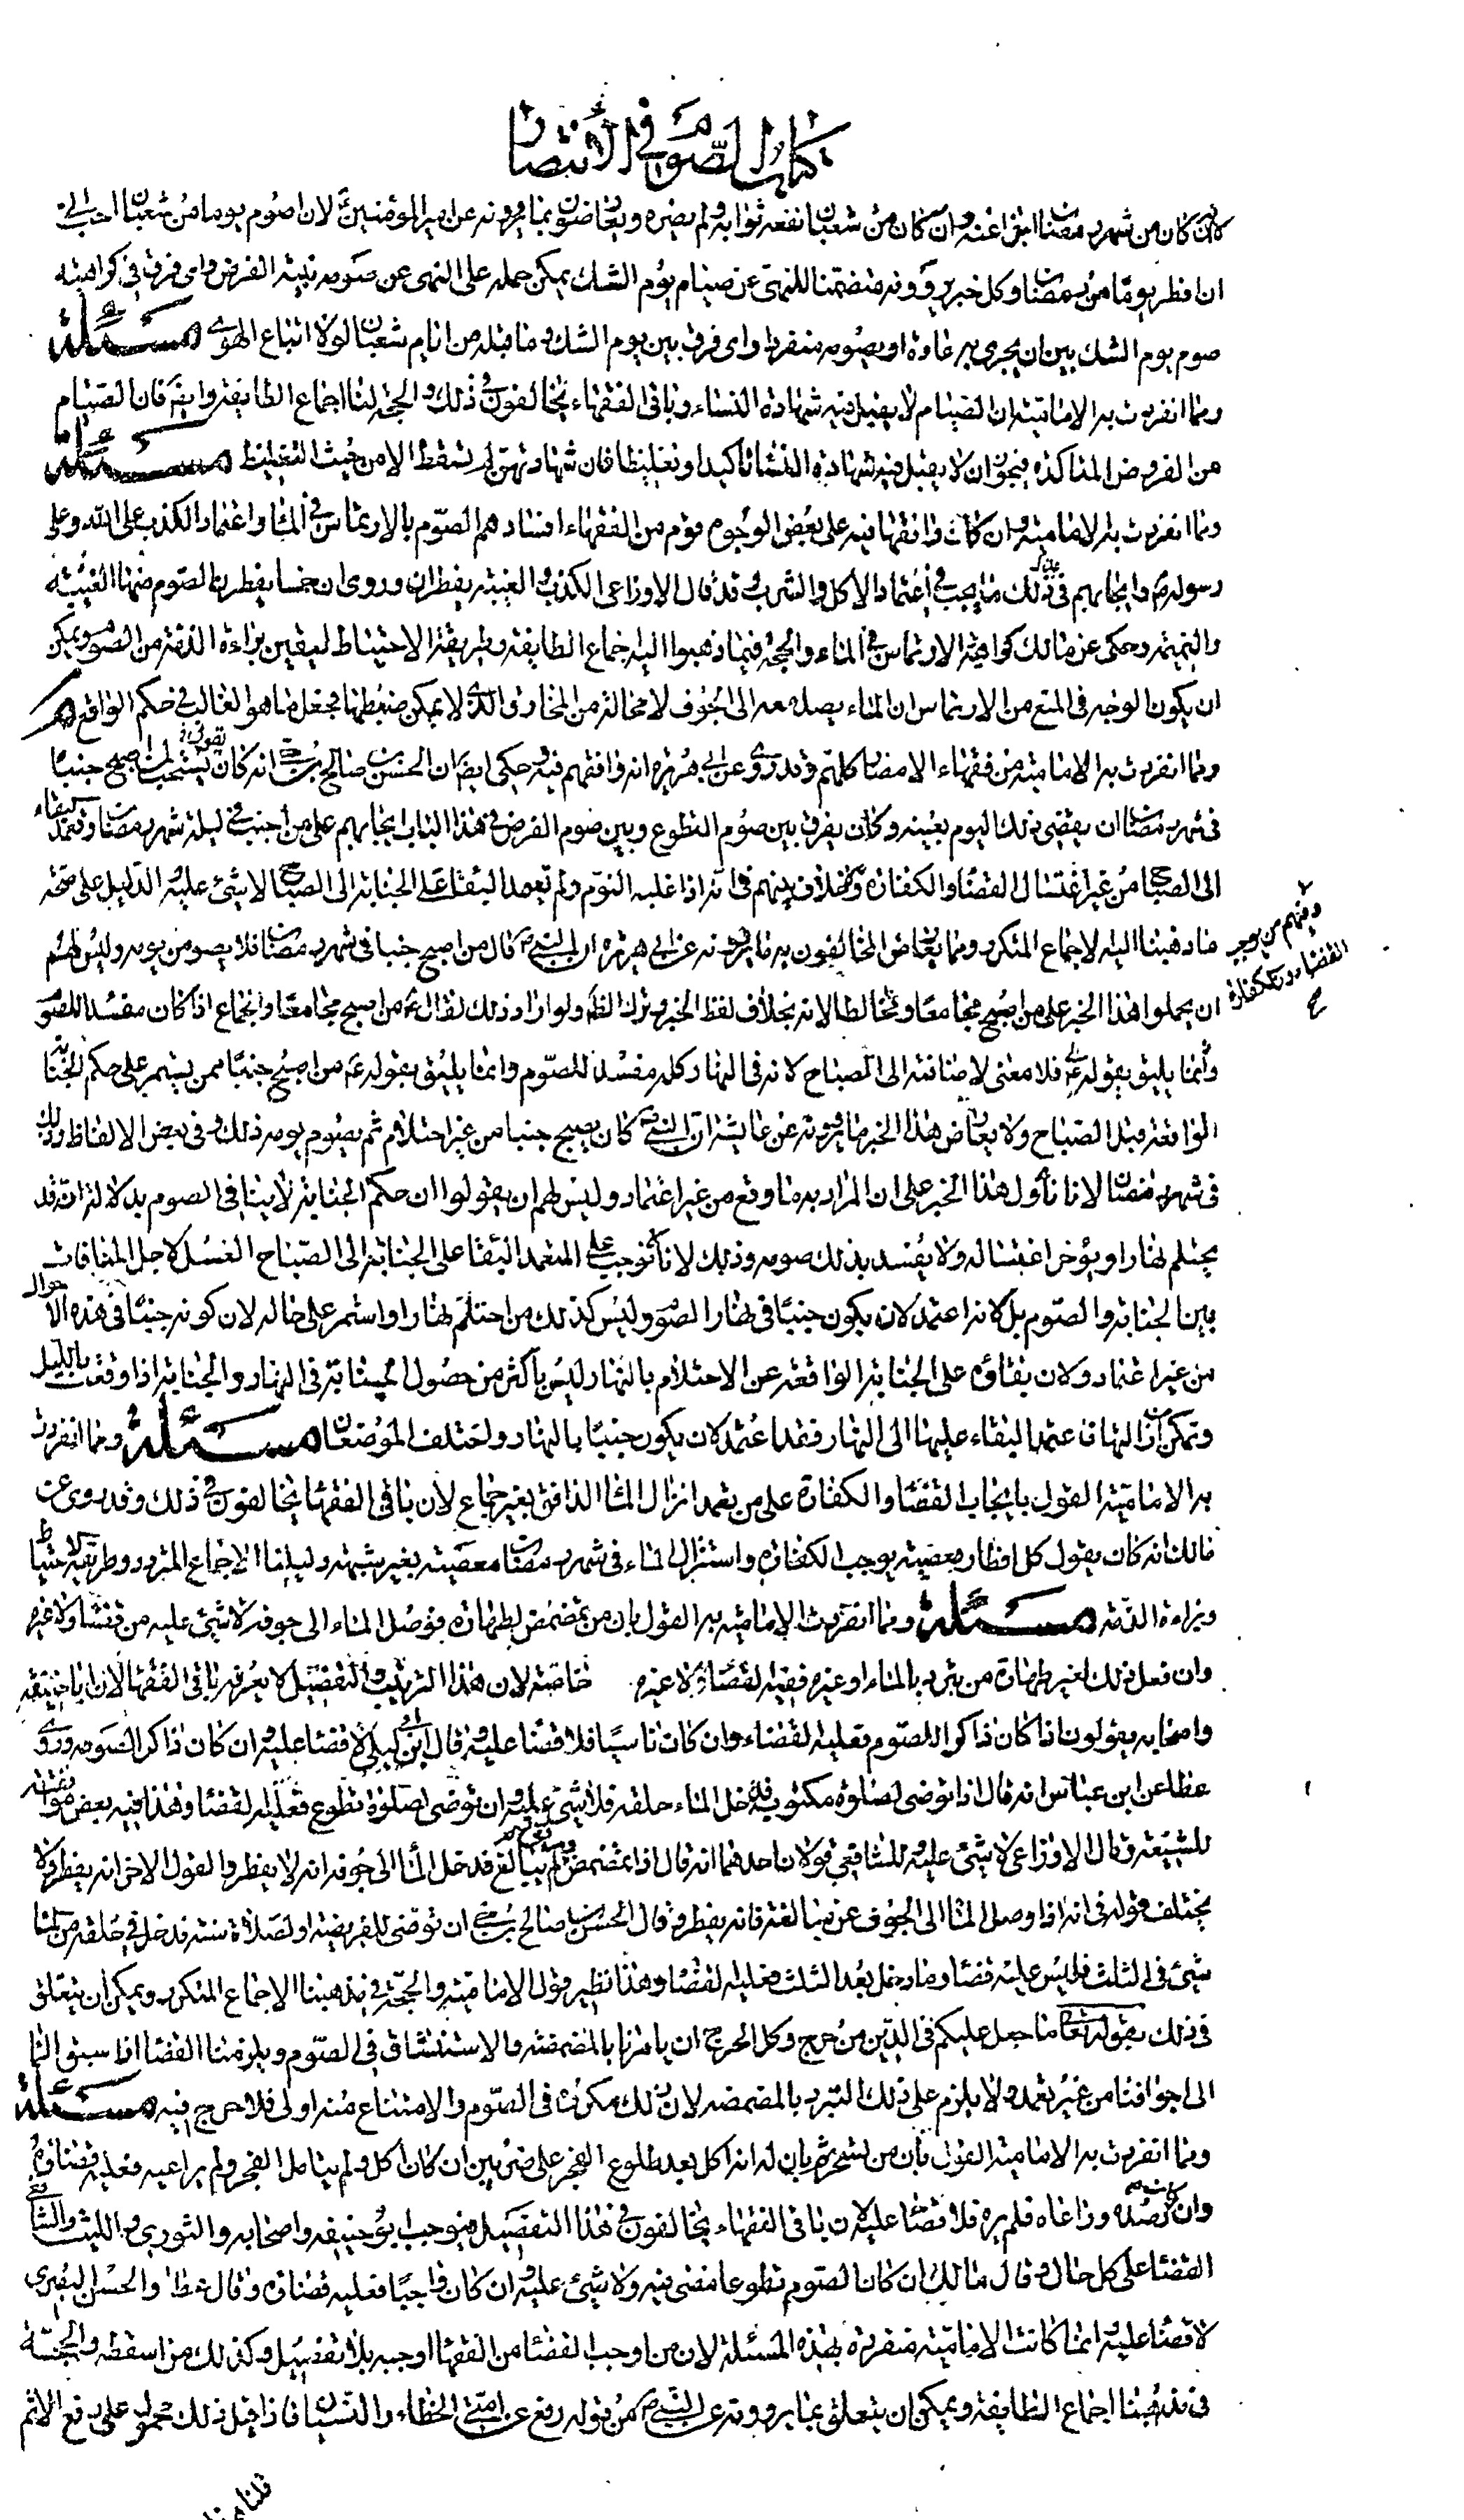 كتاب الصوم في الأنتصار
لانه ان كان من شهر رمضان اجزأ عنه وان كان من شعبان نفعه ثوابه ولم يضره ويعارضون بما يروونه عن امير المؤمنين ع لان اصوم يوما من شعبان احب الي
ان افطر يوما من رمضان وكل خبر يروونه متضمنا للنهي عن صيام يوم الشك يمكن حمله على النهي عن صومه بنية الفرض واي فرق في كراهية
صوم يوم الشك بين ان يجري به عادة او يصومه منفردا واي فرق بين يوم الشك وما قبله من ايام شعبان لولا اتباع الهوى مسئلة
ومما انفردت به الامامية ان الصيام لا يقبل فيه شهادة النساء وباقي الفقهاء يخالفون في ذلك والحجة لنا اجماع الطايفة وايض فان الصيام
من الفروض المتاكدة فيجوز ان لا يقبل فيه شهادة النساء تاكيدا وتغليظا فان شهادتهن لم تسقط الا من حيث التغليظ مسئلة
ومما انفردت به الامامية وان كان وافقها فيه على بعض الوجوه قوم من الفقهاء افسادهم الصوم بالارتماس في الماء واعتماد الكذب على الله وعلى
رسوله ص وايجابهم في ذلك ما يجب في اعتماد الاكل والشرب وقد قال الاوزاعي الكذب والغيبة يفطران وروي ان خمسا يفطرن الصوم منها الغيبة
والنميمة وحكي عن مالك كراهية الارتماس في الماء والحجة فيما ذهبوا اليه اجماع الطايفة وطريقة الاحتياط ليقين براءة الذمة من الصوم ويمكن
ان يكون الوجه في المنع من الارتماس ان الماء يصل معه الى الجوف لا محالة من المخارق والذي لا يمكن ضبطها فجعل ما هو الغالب في حكم الواقع
ومما انفردت به الامامية من فقهاء الامصار كلهم وقد روي عن ابي هريرة انه وافقهم فيه وحكي ايض ان الحسن بن صالح بن حي انه كان يستحب لمن اصبح جنبا
في شهر رمضان ان يقضي ذلك اليوم بعينه وكان يفرق بين صوم التطوع وبين صوم الفرض في هذا الباب ايجابهم على من اجنب في ليلة شهر رمضان وتعمد البقاء
الى الصباح من غير اغتسال القضاء والكفارة ولا خلاف بينهم في انه اذا غلبه النوم ولم تعمد البقاء على الجنابة الى الصباح لا شئ عليه الدليل على صحة
ومنهم من يوجب
القضاء دون الكفارة
ما ذهبنا اليه الاجماع المتكرر ومما يعارض المخالفون به ما يروونه عن ابي هريرة ان النبي ص قال من اصبح جنبا في شهر رمضان فلا يصومن يومه وليس لهم
ان يحملوا هذا الخبر على من اصبح مجامعا ومخالطا لانه بخلاف لفظ الخبر وترك الظاهر ولو اراد ذلك لقال ع من اصبح مجامعا والجماع اذا كان مفسدا للصوم
وانما يليق بقوله ع فلا معنى لاضافته الى الصباح لانه في النهار كله مفسد للصوم وانما يليق بقوله ع من اصبح جنبا ممن يستمر على حكم الجنابة
الواقعة قبل الصباح ولا يعارض هذا الخبر ما يروونه عن عايشة ان النبي ص كان يصبح جنبا من غير احتلام ثم يصوم يومه ذلك وفي بعض الالفاظ وذلك
في شهر رمضان لانا نأول هذا الخبر على ان المراد به ما وقع من غير اعتماد وليس لهم ان يقولوا ان حكم الجنابة لا ينافي الصوم بدلالة انه قد
يحتلم نهارا ويؤخر اغتساله ولا يفسد بذلك صومه وذلك لانا لم نوجب على المتعمد البقاء على الجنابة الى الصباح الغسل لاجل المنافاة
بين الجنابة والصوم بل لانه اعتمد لان يكون جنبا في نهار الصوم وليس كذلك من احتلم نهارا واستمر على حاله لان كونه جنبا في هذه الاحوال
من غير اعتماد ولان بقاؤه على الجنابة الواقعة عن الاحتلام بالنهار ليس باكثر من حصول الجنابة في النهار والجنابة اذا وقعت بالليل
وتمكن من ازالتها فاعتمد البقاء عليها الى النهار فقد اعتمد لان يكون جنبا بالنهار واختلف الموضعان مسئلة ومما انفردت
به الامامية القول بايجاب القضاء والكفارة على من تعمد انزال الماء الدافق بغير جماع لان باقي الفقهاء يخالفون في ذلك وقد روي عن
مالك انه كان يقول كل افطار بمعصية يوجب الكفارة واستنزال الماء في شهر رمضان معصية بغير شبهة دليلنا الاجماع المتردد وطريقة الاحتياط
وبراءة الذمة مسئلة ومما انفردت الامامية به القول بان من تمضمض لطهارة فوصل الماء الى جوفه لا شئ عليه من قضاء ولا غيره
وان فعل ذلك لغير طهارة من تبرد بالماء او غيره ففيه القضاء ولا غيره خاصة لان هذا الترتيب والتفصيل لا يعرفه باقي الفقهاء لان ابا حنيفة
واصحابه يقولون اذا كان ذاكرا للصوم فعليه القضاء وان كان ناسيا فلا قضاء عليه وقال ابن ابي ليلى لا قضاء عليه وان كان ذاكرا لصومه وروى
عطا عن ابن عباس انه قال اذا توضى لصلوة مكتوبة فدخل الماء حلقه فلا شئ عليه وان توضى لصلوة تطوع فعليه القضاء وهذا فيه بعض موافقة
للشيعة وقال الاوزاعي لا شئ عليه وللشافعي قولان احدهما انه قال اذا تمضمض ولم يبالغ فدخل الماء الى جوفه انه لا يفطر والقول الاخر انه يفطر ولا
يختلف قوله في انه اذا وصل الماء الى الجوف عن مبالغة فانه يفطر وقال الحسن بن صالح بن حي ان توضى لفريضة او لصلاة سنة فدخل في حلقه من الماء
شئ في الثلث فليس عليه قضاء وما دخل بعد الثلث فعليه القضاء وهذا نظير قول الامامية والحجة في مذهبنا الاجماع المتكرر ويمكن ان يتعلق
في ذلك بقوله تعا ما جعل عليكم في الدين من حرج وكل الحرج ان يامرنا بالمضمضة والاستنشاق في الصوم ويلزمنا القضاء اذا سبق الماء
الى اجوافنا من غير تعمد ولا يلزم على ذلك التبرد بالمضمضة لان ذلك مكروه في الصوم والامتناع منه اولى فلا حرج فيه مسئلة
ومما انفردت به الامامية القول بان من تسحر ثم بان له انه اكل بعد طلوع الفجر على ضربين ان كان اكل ولم يتامل الفجر ولم يراعيه فعليه قضاؤه
وان كان رصده وراعاه فلم يره فلا قضاء عليه لان باقي الفقهاء يخالفون في هذا التفصيل فيوجب ابو حنيفة واصحابه والثوري والليث والشافعي
القضاء على كل حال وقال مالك ان كان الصوم تطوعا مضى فيه ولا شئ عليه وان كان واجبا فعليه قضاؤه وقال عطا والحسن البصري
لا قضاء عليه انما كانت الامامية منفردة بهذه المسئلة لان من اوجب القضاء من الفقهاء اوجبه بلا تفصيل وكذلك من اسقطه والحجة
في مذهبنا اجماع الطايفة ويمكن ان يتعلق بما يروونه عن النبي ص من قوله رفع عن امتي الخطاء والنسيان فاذا قيل ذلك محمول على رفع الاثم
قلنا